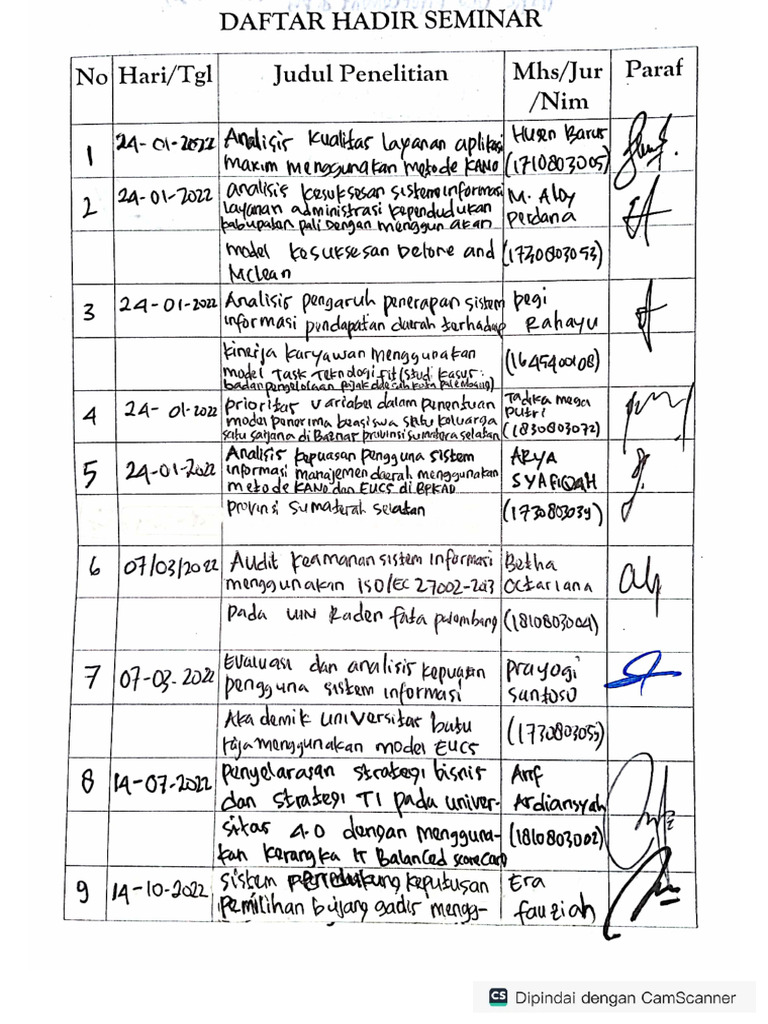 DAFTAR HADIR SEMINAR
No Hari/Tgl Judul Penelitian Mhs/Jur
/Nim Paraf
1 24-01-2022 Analisis Kualitas layanan aplikasi Husen Barus
maxim menggunakan metode KANO (1710803005)
2 24-01-2022 analisis kesuksesan sistem informasi M. Aldy
layanan administrasi kependudukan Perdana
kabupaten pali Dengan menggunakan
model kesuksesan Delone and (1730803053)
McLean
3 24-01-2022 Analisis pengaruh penerapan sistem pegi
informasi pendapatan daerah terhadap Rahayu
kinerja karyawan menggunakan (1645400108)
model Task Teknologi fit (studi kasus:
badan pengelolaan pajak daerah kota palembang)
4 24-01-2022 prioritas variabel dalam penentuan Tadika mega
model penerima beasiswa satu keluarga putri
satu sarjana di Baznas provinsi sumatera selatan (1830803072)
5 24-01-2022 Analisis kepuasan pengguna sistem ARYA
informasi manajemen daerah menggunakan SYAFIQAH
metode KANO dan EUCS di BPKAD
provinsi sumaterah selatan (1730803039)
6 07/03/2022 Audit keamanan sistem informasi Betha
menggunakan ISO/IEC 27002-2013 Octariana
pada UIN Raden fata palembang (1810803004)
7 07-03-2022 Evaluasi dan analisis kepuasan prayogi
pengguna sistem informasi santoso
Akademik universitas batu (1730803055)
raja menggunakan model EUCS
8 14-07-2022 penyelarasan strategi bisnis Arif
dan strategi TI pada univer- Ardiansyah
sitas 4.0 dengan mengguna- (1810803002)
kan kerangka IT Balanced scorecard
9 14-10-2022 sistem keputusan Era
pemilihan bujang gadis mengg- fauziah
CS Dipindai dengan CamScanner